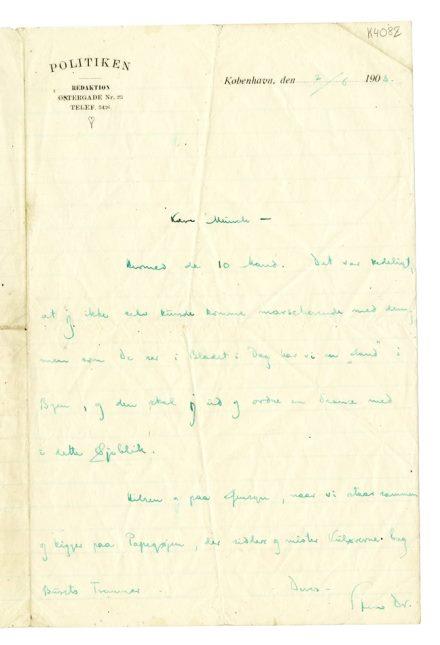 K4082
POLITIKEN
REDAKTION
ØSTERGADE Nr. 23
TELEF.
København, den 7/6 190
Kære Munch —
hermed de 10 Mand. Det var kedeligt,
at jeg ikke selv kunde komme marscherende med dem,
men som De ser i Bladet i Dag har vi en i
Byen, og den skal jeg ud og ordne en Seance med
i dette Øjeblik.
Hilsen og paa Gensyn, naar vi staar sammen
og kigger paa Papegøjen, der sidder og mister bag
Deres —